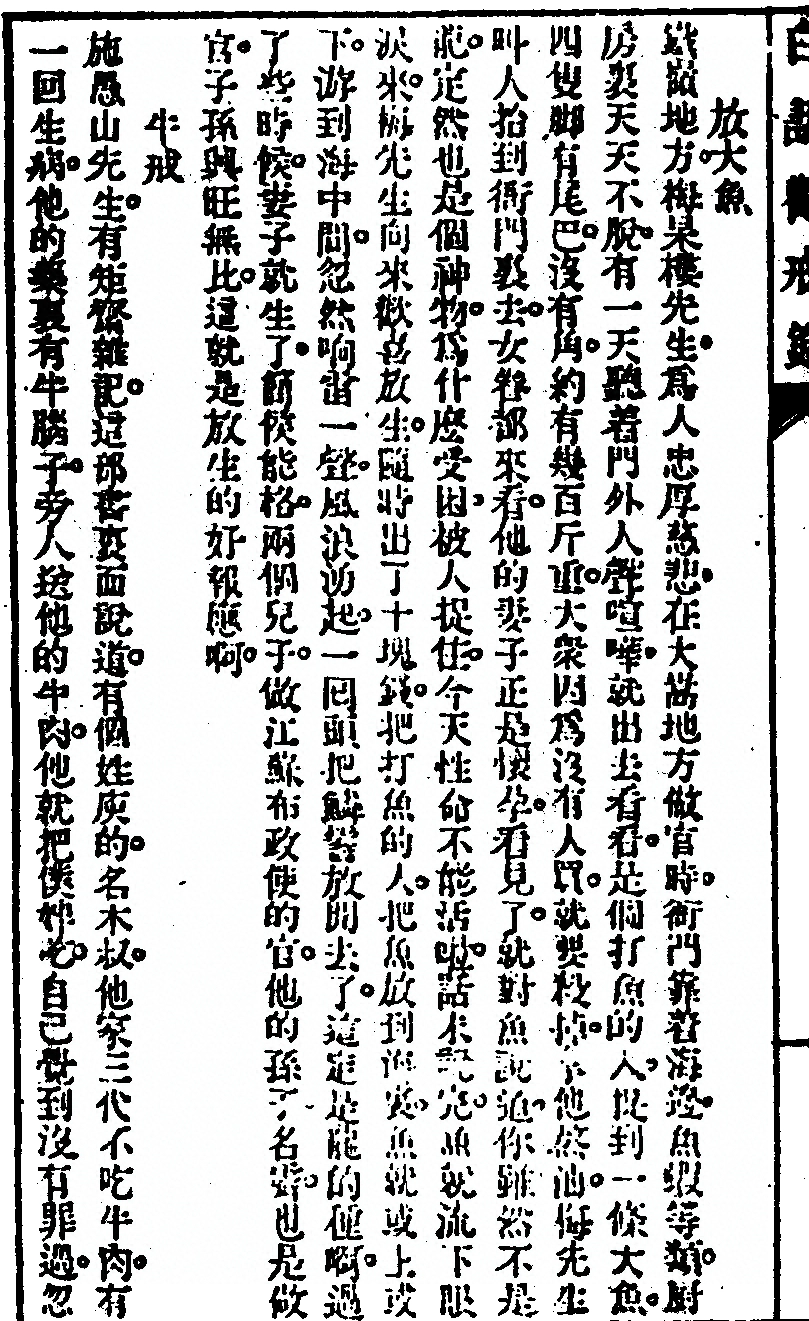 白話勸戒錄
放大魚
鐵嶺地方。梅杲樓先生。爲人忠厚慈悲。在大嵩地方做官時。衙門靠著海邊。魚蝦等類。厨
房裏天天不脫。有一天聽着門外人聲喧嘩。就出去看看。是個打魚的人。捉到一條大魚。
四隻脚有尾巴。沒有角。約有幾百斤重。大衆因爲沒有人買。就要殺掉了他熬油。梅先生
叫人抬到衙門裏去。女眷都來看。他的妻子正是懷孕。看見了。就對魚說道。你雖然不是
龍。定然也是個神物。爲什麽受困。被人捉住。今天性命不能活啦。話未說完。魚就流下眼
淚來。梅先生向來歡喜放生。隨時出了十塊錢。把打魚的人。把魚放到海裏。魚就或上或
下。游到海中間。忽然响雷一聲。風浪湧起。一回頭把鱗鬐放開去了。這定是龍的種啊。過
了些時候。妻子就生了。前候能格。兩個兒子。做江蘇布政使的官。他的孫子名 。也是做
官。子孫興旺無比。這就是放生的好報應啊。
牛戒
施愚山先生。有矩齋雜記。這部書裏面說道。有個姓庾的。名木叔。他家三代不吃牛肉。有
一回生病。他的藥裏有牛腦子。旁人送他的牛肉。他就把僕婢吃。自己覺到沒有罪過。忽